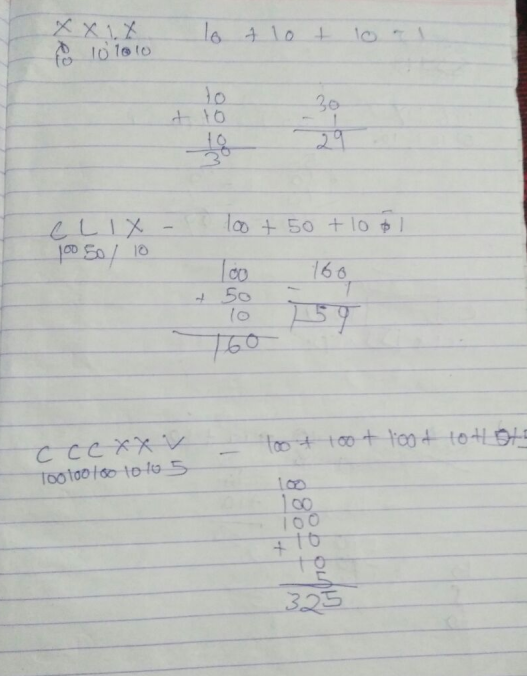 X X I X 10 + 10 + 10 - 1
10 10 1 10 10
10
+ 10 30
10 - 1
30 29
C L I X - 100 + 50 + 10 - 1
100 50 1 10
100 160
+ 50 - 1
10 159
160
C C C X X V - 100 + 100 + 100 + 10 + 10 + 5
100 100 100 10 10 5
100
100
100
+ 10
10
5
325